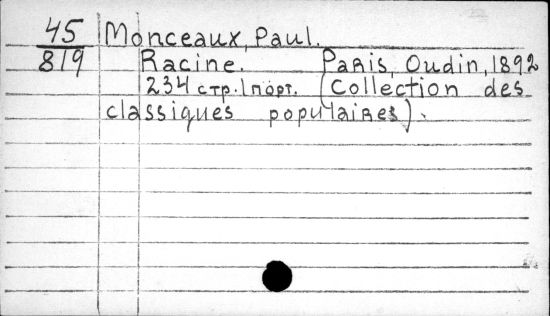 45 Monceaux, Paul.
819 Racine. Paris, Oudin, 1892
234 стр. 1 порт. (Collection des
classiques populaires).